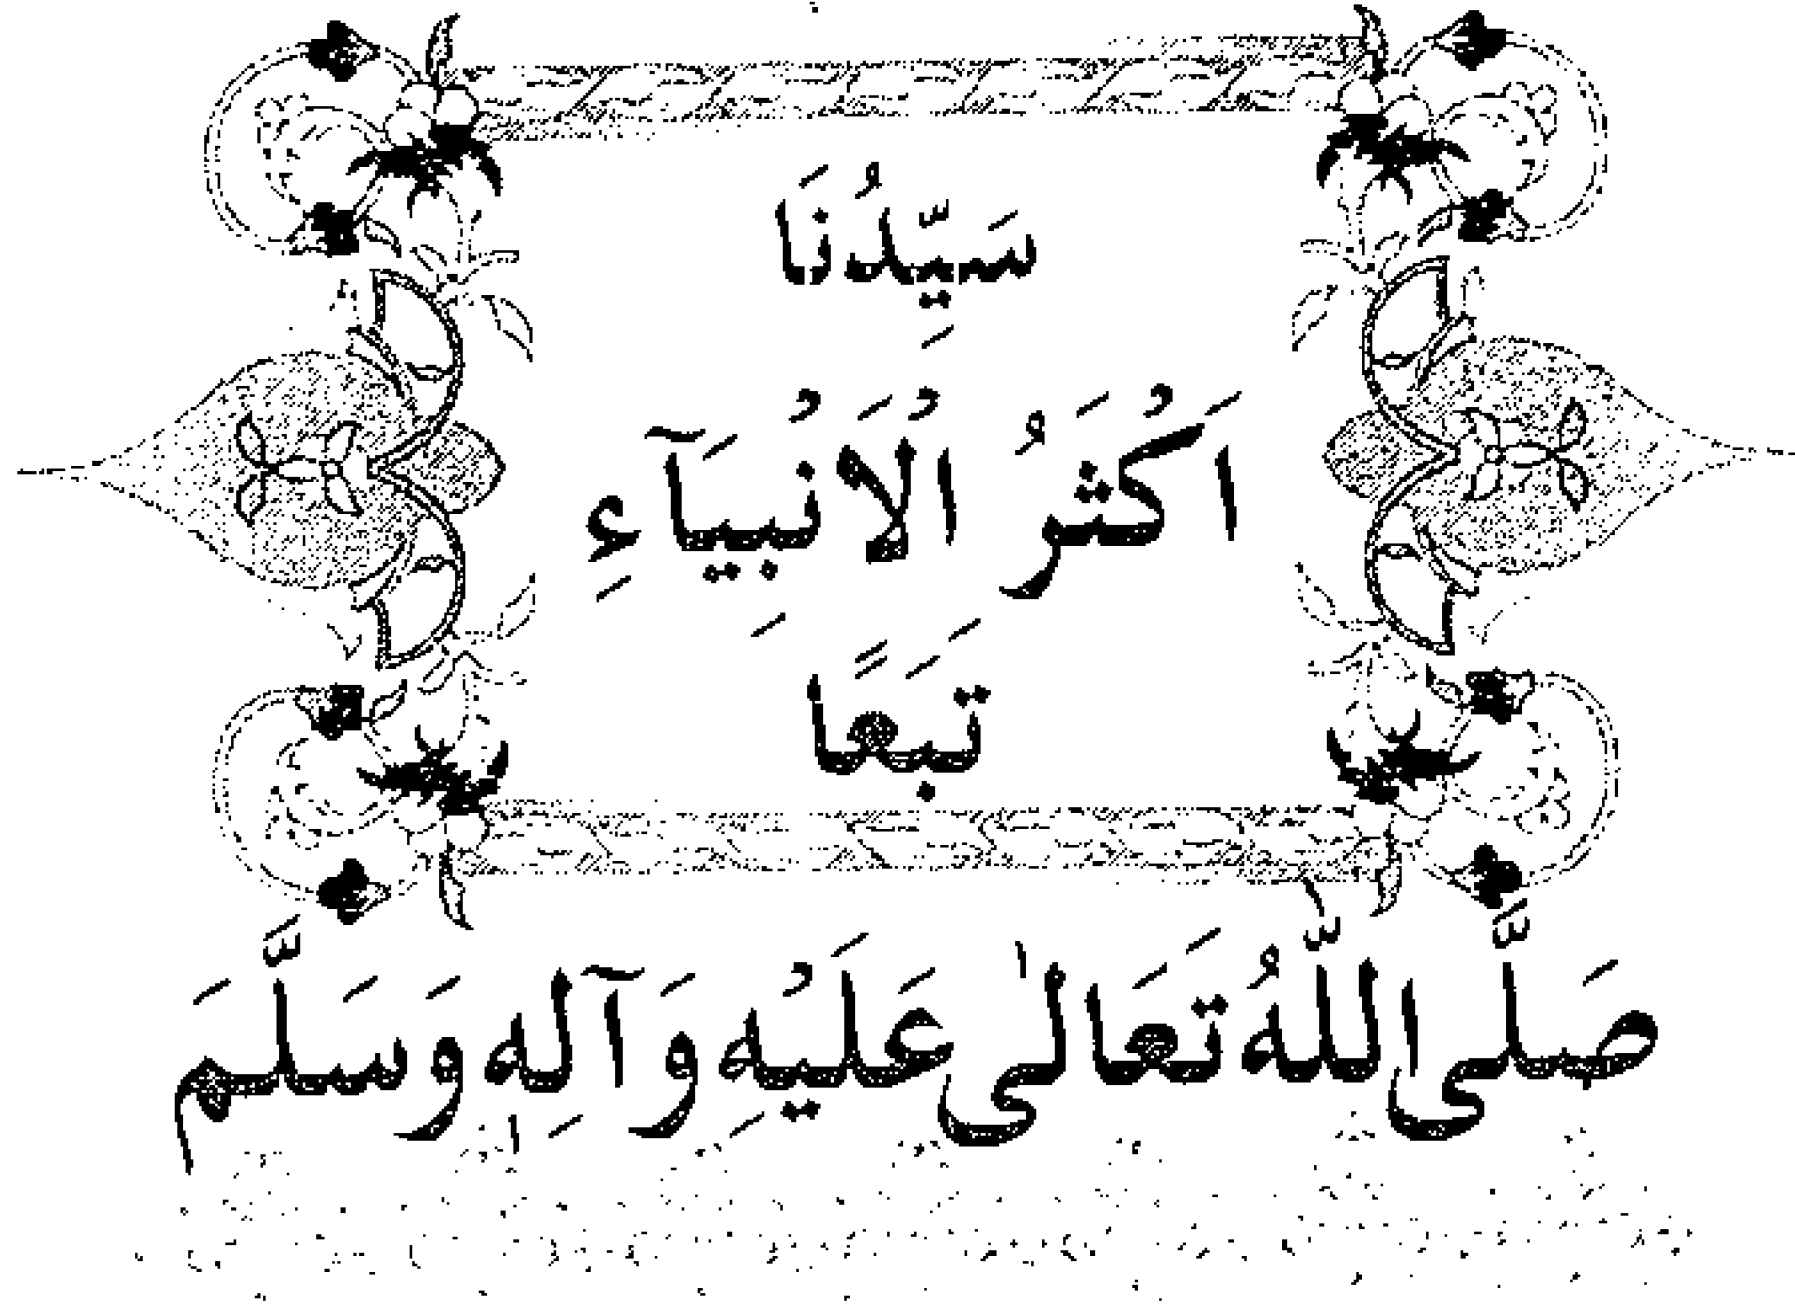 سَيِّدُنَا
اَكْثَرُ الْاَنْبِيَآءِ
تَبَعًا
صَلَّى اللّٰهُ تَعَالٰى عَلَيْهِ وَآلِهٖ وَسَلَّمَ